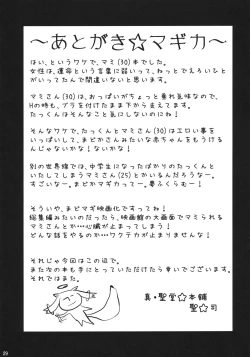 ～あとがき☆マギカ～
はい、というワケで、マミ(30)本でした。
女性は、運命という言葉に弱いって、ねっとでえろいひと
がいってたんで間違いないと思います。
マミさん(30)は、おっぱいがちょっと垂れ気味なので、
Hの時も、ブラを付けたまま下から支えてます。
たっくんはそんなこと気にしないのにね!
そんなワケで、たっくんとマミさん(30)はエロい事を
いっぱいして、まどかさんみたいな赤ちゃんをもうける
んじゃないかな!ないかな!
別の世界線では、中学生になったばかりのたっくんと
いたしてしまうマミさん(25)とかいるんだろうなー。
すごいなー。まどかマギカって…夢ふくらむー!
そういや、まどマギ映画化ですってね!
総集編みたいのだったら、映画館の大画面でマミられる
マミさんとか…心臓が止まってしまう!
どんな話をやるのか…ワクテカが止まりませんな!
それじゃ今回はこの辺で。
また次の本も手にとっていただけたら幸いでございます。
それではまた。
真・聖堂☆本舗
聖☆司
29